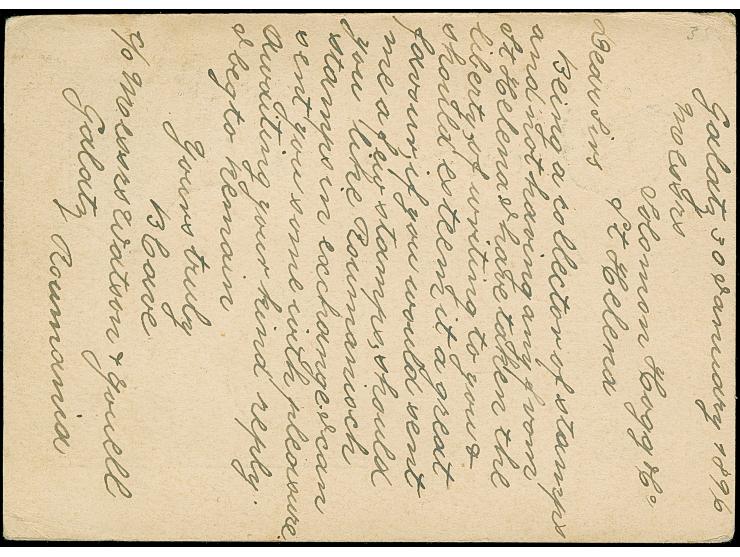 Galatz 30 January 1896
Messrs
Solomon Hogg & Co
St Helena
Dear Sirs
Being a collector of stamps
and not having any from
St Helena I have taken the
liberty of writing to you &
should esteem it a great
favour if you would sent
me a few stamps, should
you like Roumanioch
stamps in exchange I can
sent you some with pleasure.
Awaiting your kind reply.
I beg to remain
Yours truly
B Cave
c/o Messrs Watson & Youell
Galatz Roumania